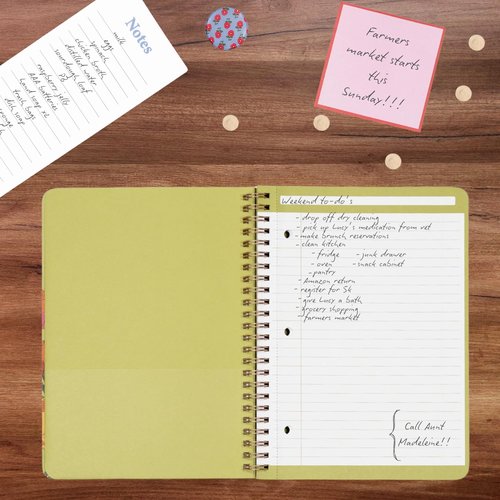 Notes
milk
eggs
spinach
chicken broth
distilled water
sourdough loaf
raspberry jelly
AAA batteries
hand soap
trash bags
dish soap
Farmers
market starts
this
Sunday!!!
Weekend to-do's
- drop off dry cleaning
- pick up Lucy's medication from vet
- make brunch reservations
- clean kitchen
- fridge - junk drawer
- oven - snack cabinet
- pantry
- Amazon return
- register for 5k
- give Lucy a bath
- grocery shopping
- farmers market
Call Aunt
Madeleine!!